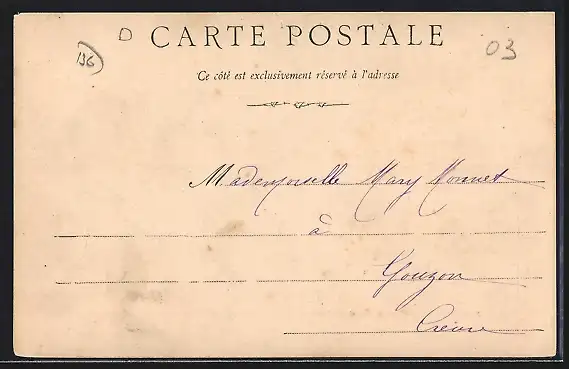 136
D CARTE POSTALE 03
Ce côté est exclusivement réservé à l'adresse
Mademoiselle Mary Monnet
à
Gouzon
Creuse